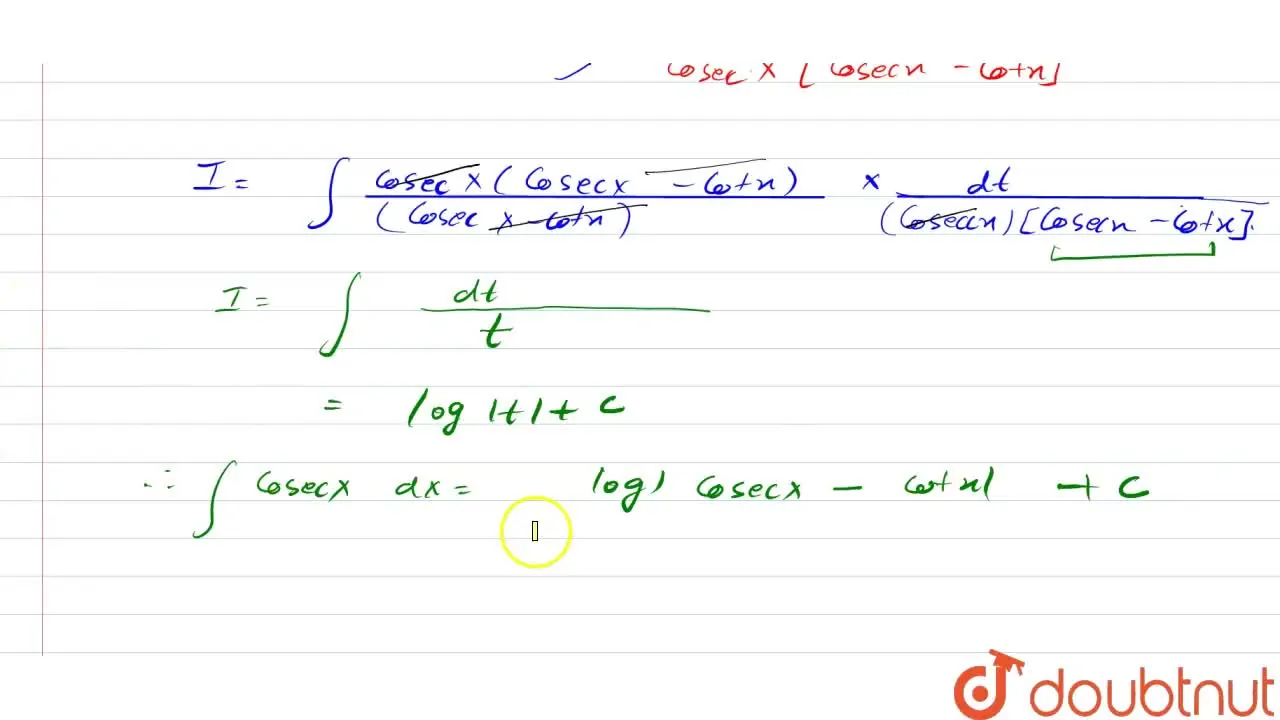 cosec x [cosec x - cot x]
I = ∫ cosec x (cosec x - cot x) / (cosec x - cot x) × dt / (cosec x) [cosec x - cot x].
I = ∫ dt / t
= log |t| + c
∴ ∫ cosec x dx = log | cosec x - cot x | + c
doubtnut